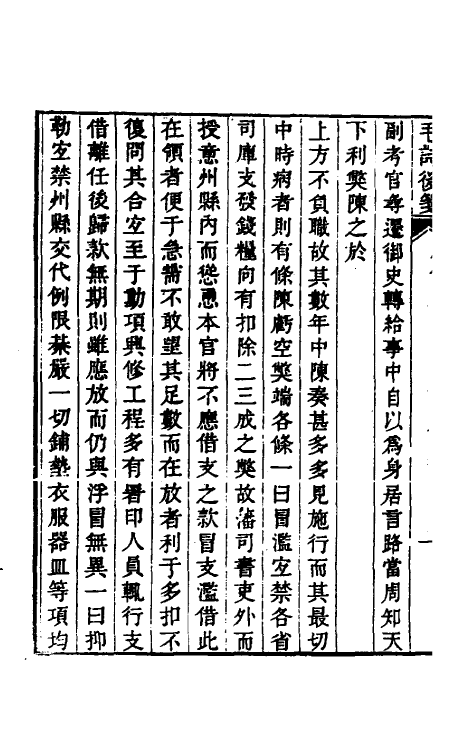 毛詩後箋
副考官尋遷御史轉給事中自以為身居言路當周知天
下利獘陳之於
上方不負職故其數年中陳奏甚多多見施行而其最切
中時病者則有條陳虧空獘端各條一曰冒濫宐禁各省
司庫支發錢糧向有扣除二三成之獘故藩司書吏外而
授意州縣內而慫恿本官將不應借支之款冒支濫借此
在領者便于急需不敢望其足數而在放者利于多扣不
復問其合宐至于動項興修工程多有署印人員輒行支
借離任後歸款無期則雖應放而仍與浮冒無異一曰抑
勒宐禁州縣交代例限綦嚴一切鋪墊衣服器皿等項均
一